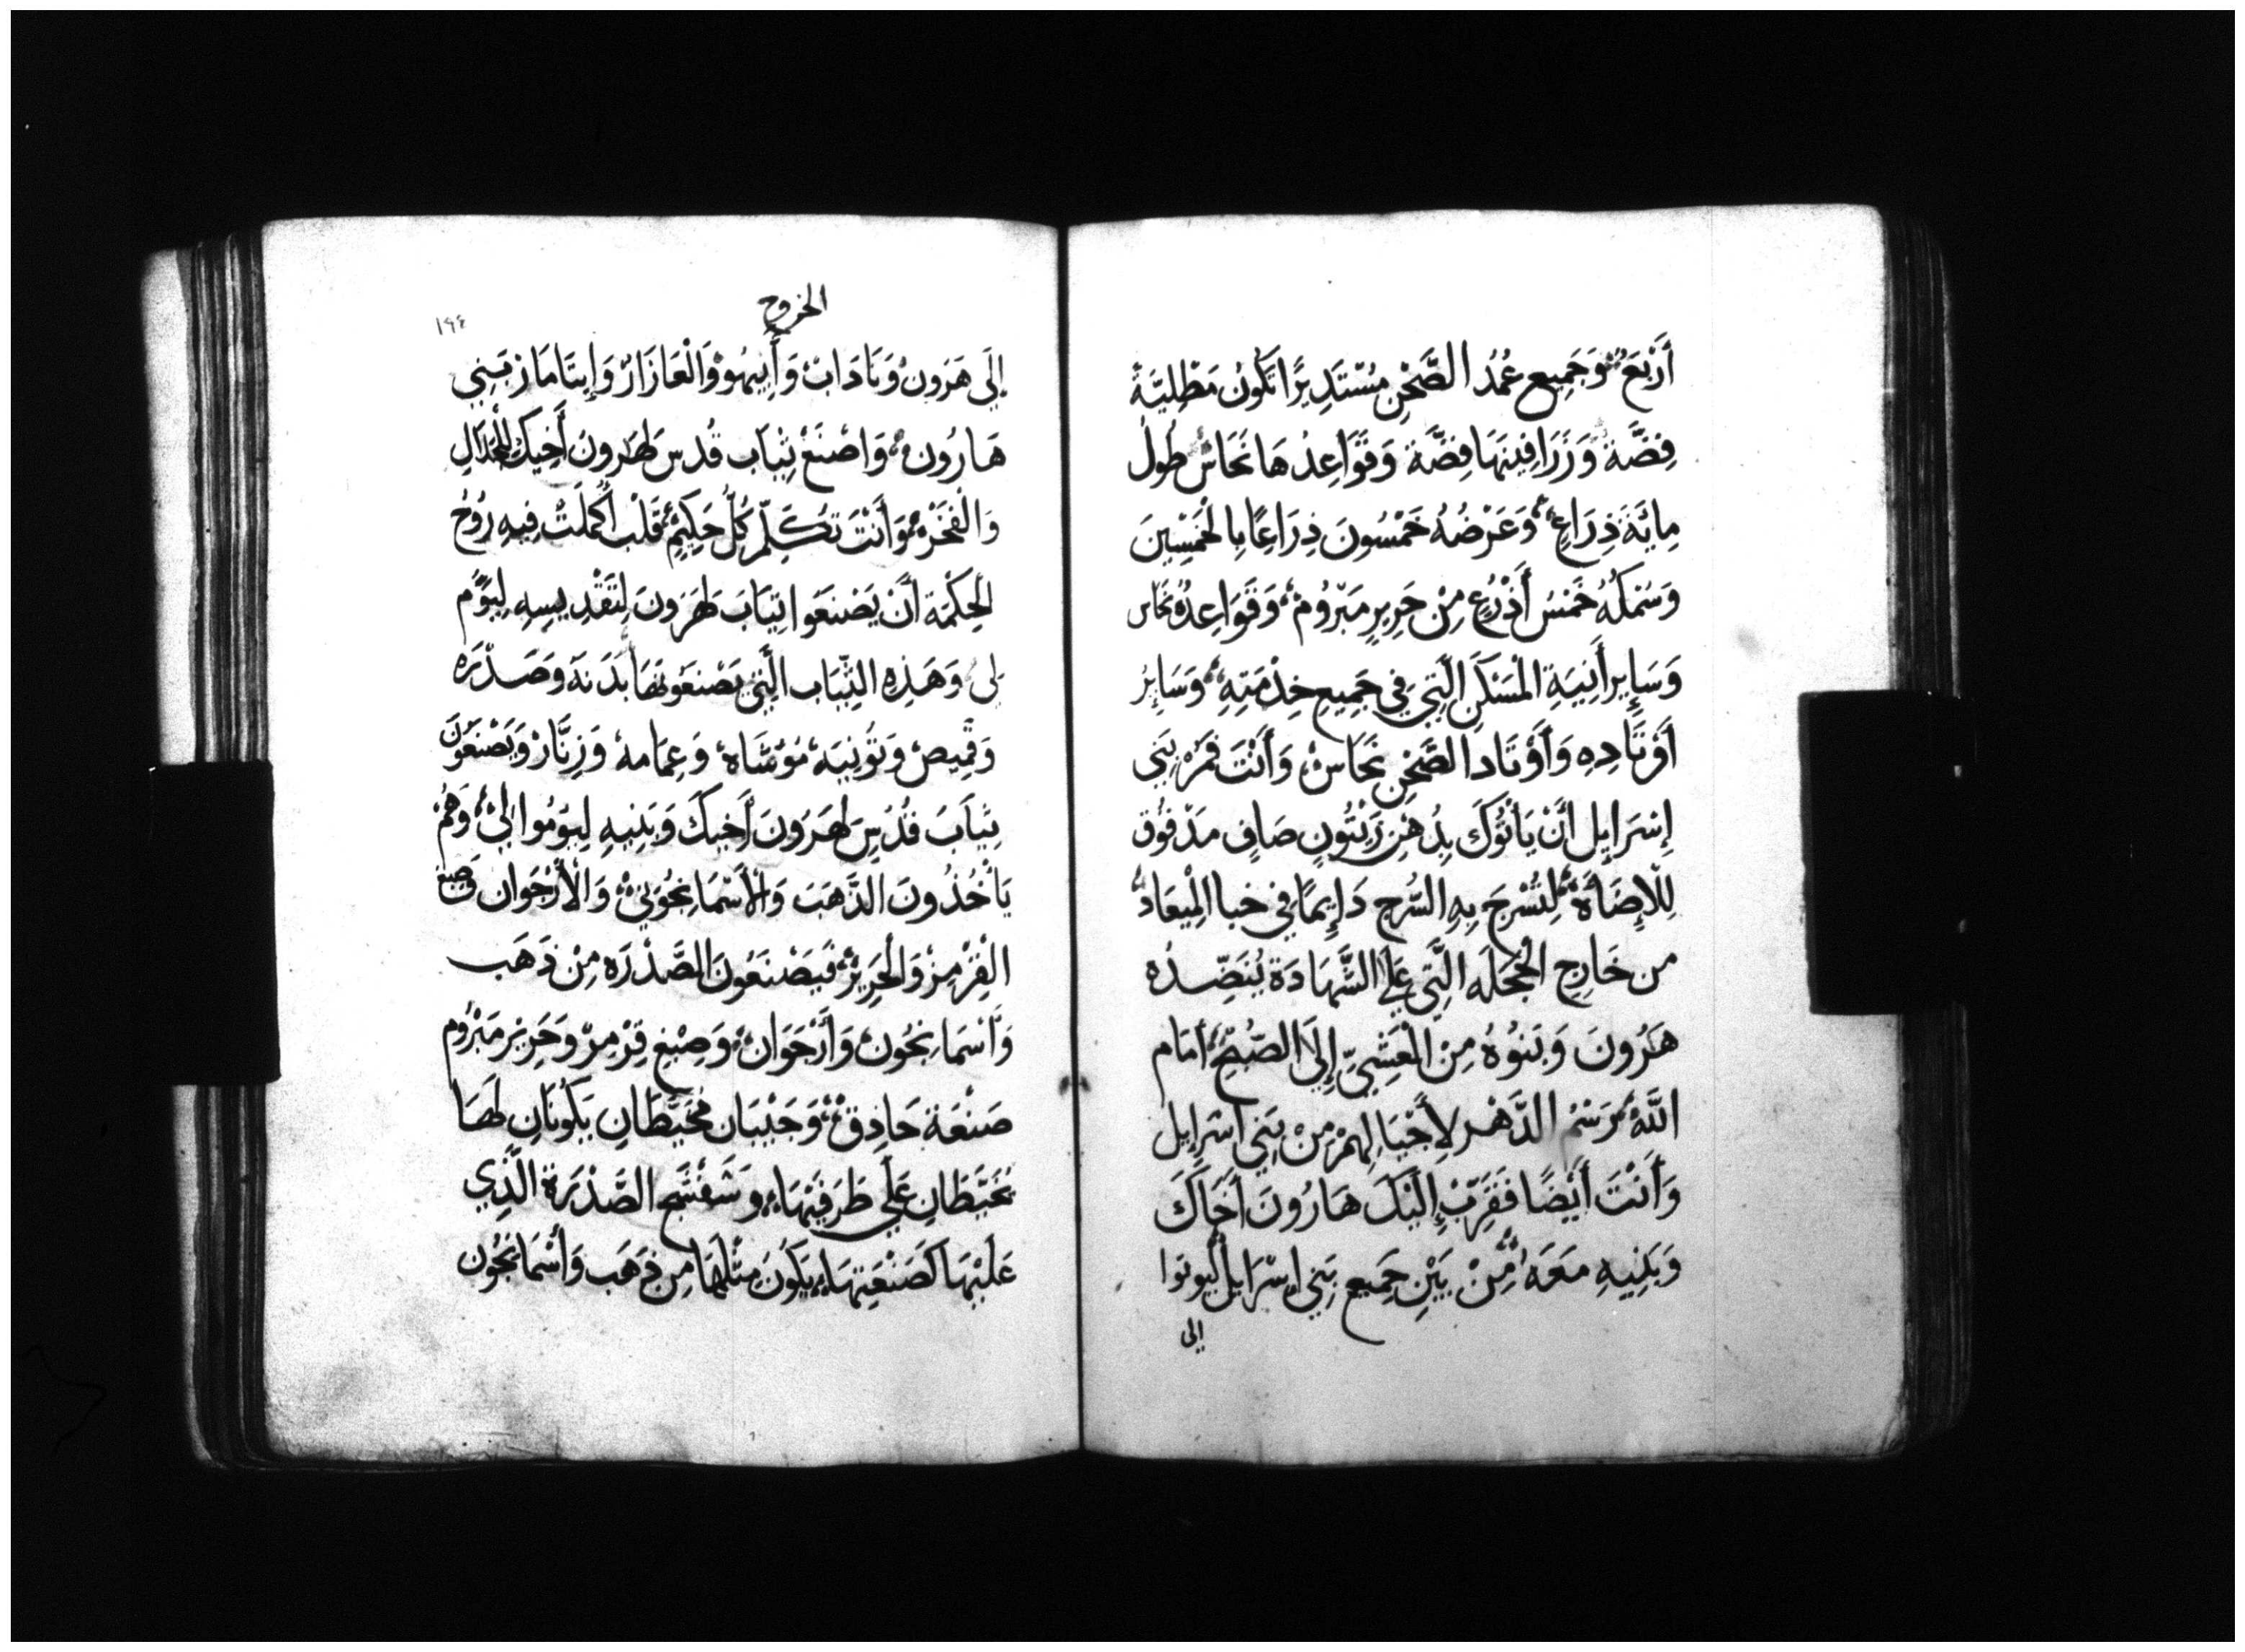 أَرْبَعُ وَجَمِيع عُمُدُ الصَّحْنِ مُسْتَدِيرًا تَكُونُ مَطْلِيَّةً
فِضَّةً وَزَرَافِينَهَا فِضَّة وَقَوَاعِدُهَا نُحَاسٌ طُولُ
مِايَةَ ذِرَاعٍ وَعَرْضُهُ خَمْسُونَ ذِرَاعًا بِالْخَمْسِينَ
وَسُمْكُهُ خَمْسُ أَذْرُعٍ مِنْ حَرِيرٍ مَبْرُومٍ وَقَوَاعِدُهُ نُحَاس
وَسَايِر أَنِيَةِ الْمَسْكَنِ الَّتِي فِي جَمِيعِ خِدْمَتِهِ وَسَايِرُ
أَوْتَادِهِ وَأَوْتَاد الصَّحْنِ نُحَاسٌ وَأَنْتَ فَمُرْ بَنِي
إِسْرَايِل أَنْ يَاتُوكَ بِدُهْنِ زَيْتُونٍ صَافٍ مَدْقُوق
لِلْإِضَاةِ لِتُسْرِجَ بِهِ السُّرج دَايِمًا فِي خبا الْمِيعَادُ
من خَارِجِ الْحَجَلَه الَّتِي عَلَى الشَّهَادَة يُنَضِّدُه
هَرُونَ وَبَنُوهُ مِنَ الْعَشِيِّ إِلَى الصُّبْحِ أَمَام
اللَّهْ رَسْمُ الدَّهْر لِأَجْيَالِهِمْ مِنْ بَنِي اسْرَايِل
وَأَنْتَ أَيْضًا فَقَرِّبْ إِلَيْكَ هَارُونَ أَخَاكَ
وَبَنِيهِ مَعَهُ مِنْ بَيْنِ جَمِيع بَنِي اسْرَايِل لِيومُوا
الى
الخروج
١٩٤
إِلَى هَرُونَ وَنَادَابْ وَأَبِيهُو وَالْعَازَارْ وَإِيتَامَار بَنِي
هَارُون وَاصْنَعْ ثِيَاب قُدس لِهَارونَ أَخِيكَ لِلْجَلَالِ
وَالْفَخْرْ وَأَنْتَ تكَلِّمْ كُلَّ حَكِيمِ قَلْب أَكْمَلْتُ فِيهِ رُوْحُ
الْحِكْمَة أَنْ يَصْنَعَوا ثِيَابَ لِهَرُونَ لِتَقْدِيسِهِ لِيَوُمَّ
لِي وَهَذِهِ الثِّيَاب الَّتِي يَصْنَعُونَهَا بَدَنَه وَصَدْرَه
وَقَمِيص وَتُونِيَه مُوَشَّاه وَعِمَامه وَزِنَّارْ وَيَصْنَعُونَ
ثِيَابَ قُدْسِ لِهَرُونَ أَخِيكَ وَبَنِيهِ لِيَوُمُوا لِي وَهُمْ
يَأْخُذُونَ الذَّهَبَ وَالْأَسْمَانْجُونِيْ وَالْأَرْجَوَان وَصبغ
الْقِرْمِزْ وَالْحَرِيْرْ فَيَصْنَعُونَ الصَّدْرَه مِنْ ذَهَب
وَأَسْمَانْجُون وَأَرْجَوَان وَصِبْغِ قِرْمِزْ وَحَرِيْر مَبْرُوم
صَنْعَة حَاذِقْ وَجَيْبَان مُخَيَّطَانِ يَكُونَانِ لَهَا
مُخَيَّطَانِ عَلَى طَرَفَيْهَا وَشَفْشَج الصَّدْرَة الَّذِي
عَلَيْهَا كَصَنْعَتِهَا يَكُونَ مِثْلَهَا مِن ذَهَب وَأَسْمَانْجُون